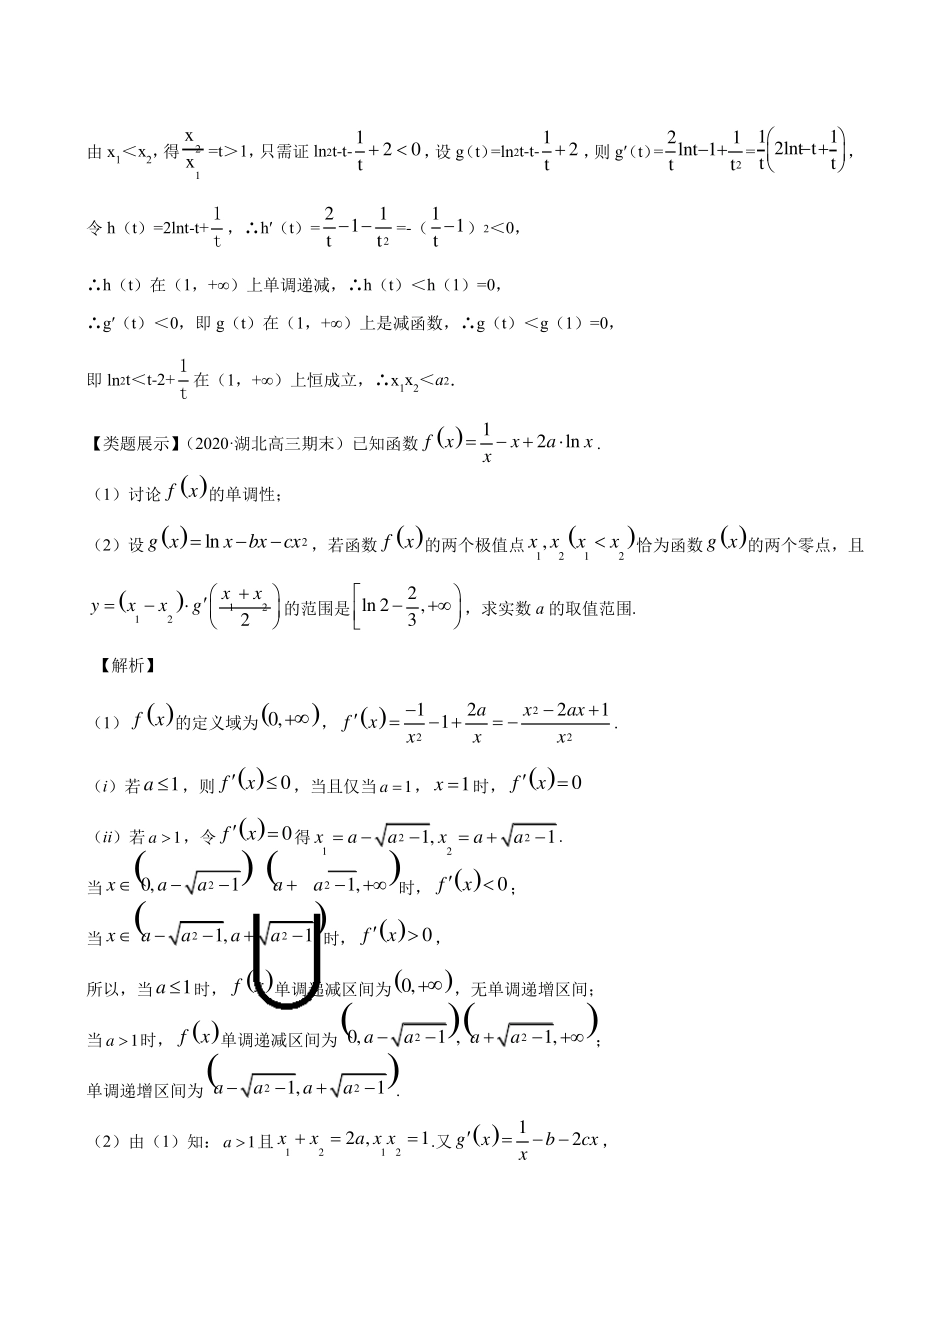 由 x₁＜x₂，得 x₂/x₁ =t＞1，只需证 ln²t-t-1/t+2<0，设 g（t）=ln²t-t-1/t+2，则 g′（t）=2/t lnt-1+1/t²=1/t(2lnt-t+1/t)，
令 h（t）=2lnt-t+1/t，∴h′（t）=2/t-1-1/t²=-（1/t-1）²＜0，
∴h（t）在（1，+∞）上单调递减，∴h（t）＜h（1）=0，
∴g′（t）＜0，即 g（t）在（1，+∞）上是减函数，∴g（t）＜g（1）=0，
即 ln²t＜t-2+1/t 在（1，+∞）上恒成立，∴x₁x₂＜a²．
【类题展示】（2020·湖北高三期末）已知函数 f(x)=1/x-x+2a·ln x .
（1）讨论 f(x)的单调性；
（2）设 g(x)=ln x-bx-cx²，若函数 f(x)的两个极值点 x₁,x₂(x₁<x₂)恰为函数 g(x)的两个零点，且
y=(x₁-x₂)·g′((x₁+x₂)/2)的范围是[ln 2-2/3,+∞)，求实数 a 的取值范围.
【解析】
（1）f(x)的定义域为(0,+∞)，f′(x)=-1/x²-1+2a/x=-(x²-2ax+1)/x².
（i）若 a≤1，则 f′(x)≤0，当且仅当 a=1，x=1时，f′(x)=0
（ii）若 a>1，令 f′(x)=0得 x₁=a-√(a²-1),x₂=a+√(a²-1).
当 x∈(0,a-√(a²-1)) (a+√(a²-1),+∞)时，f′(x)<0；
当 x∈(a-√(a²-1),a+√(a²-1))时，f′(x)>0，
所以，当 a≤1时，f(x)单调递减区间为(0,+∞)，无单调递增区间；
当 a>1时，f(x)单调递减区间为(0,a-√(a²-1)),(a+√(a²-1),+∞)；
单调递增区间为(a-√(a²-1),a+√(a²-1)).
（2）由（1）知：a>1且 x₁+x₂=2a,x₁x₂=1.又 g′(x)=1/x-b-2cx，